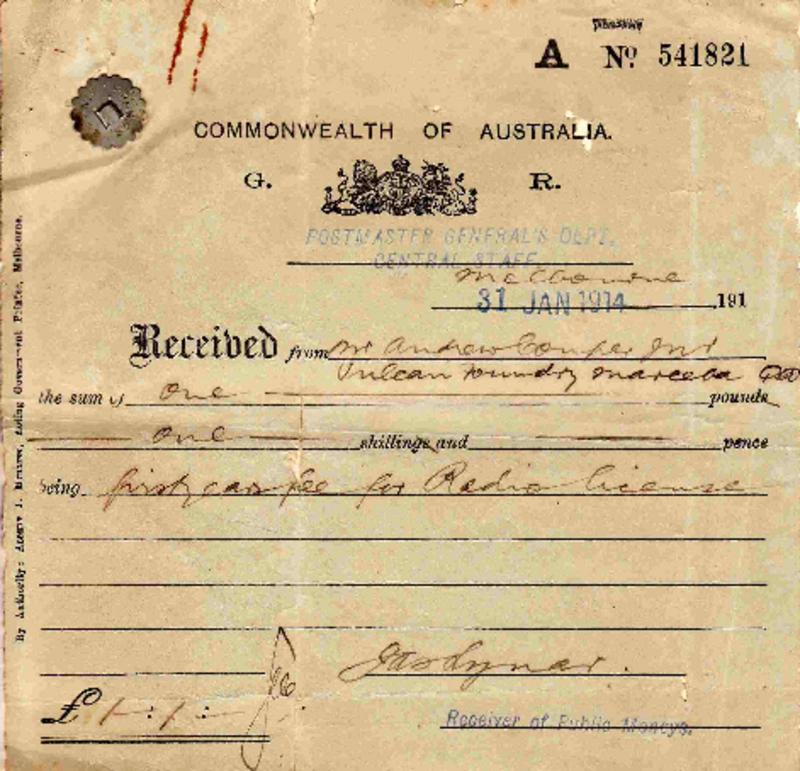 A No 541821
COMMONWEALTH OF AUSTRALIA.
G. R.
POSTMASTER GENERAL'S DEPT.
CENTRAL STAFF.
Melbourne
31 JAN 1914 191
Received from Mr Andrew Couper Jnr
Vulcan Foundry Mareeba
the sum of one pounds
one shillings and pence
being first years fee for Radio license
Jas Lynar.
£ 1:1:
Receiver of Public Moneys.
Acting Government Printer, Melbourne.
By Authority: J.